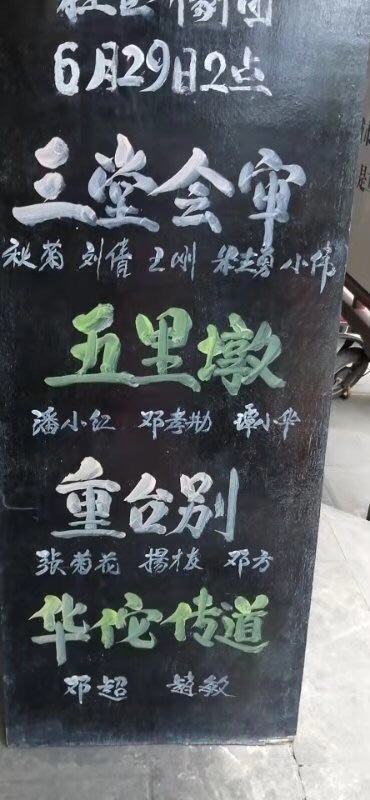 6月29日2点
三堂会审
秋菊 刘倩 王刚 宋志勇 小伟
五里墩
潘小红 邓孝勋 谭小华
重台别
张菊花 揚枝 邓方
华佗传道
邓超 赵敏